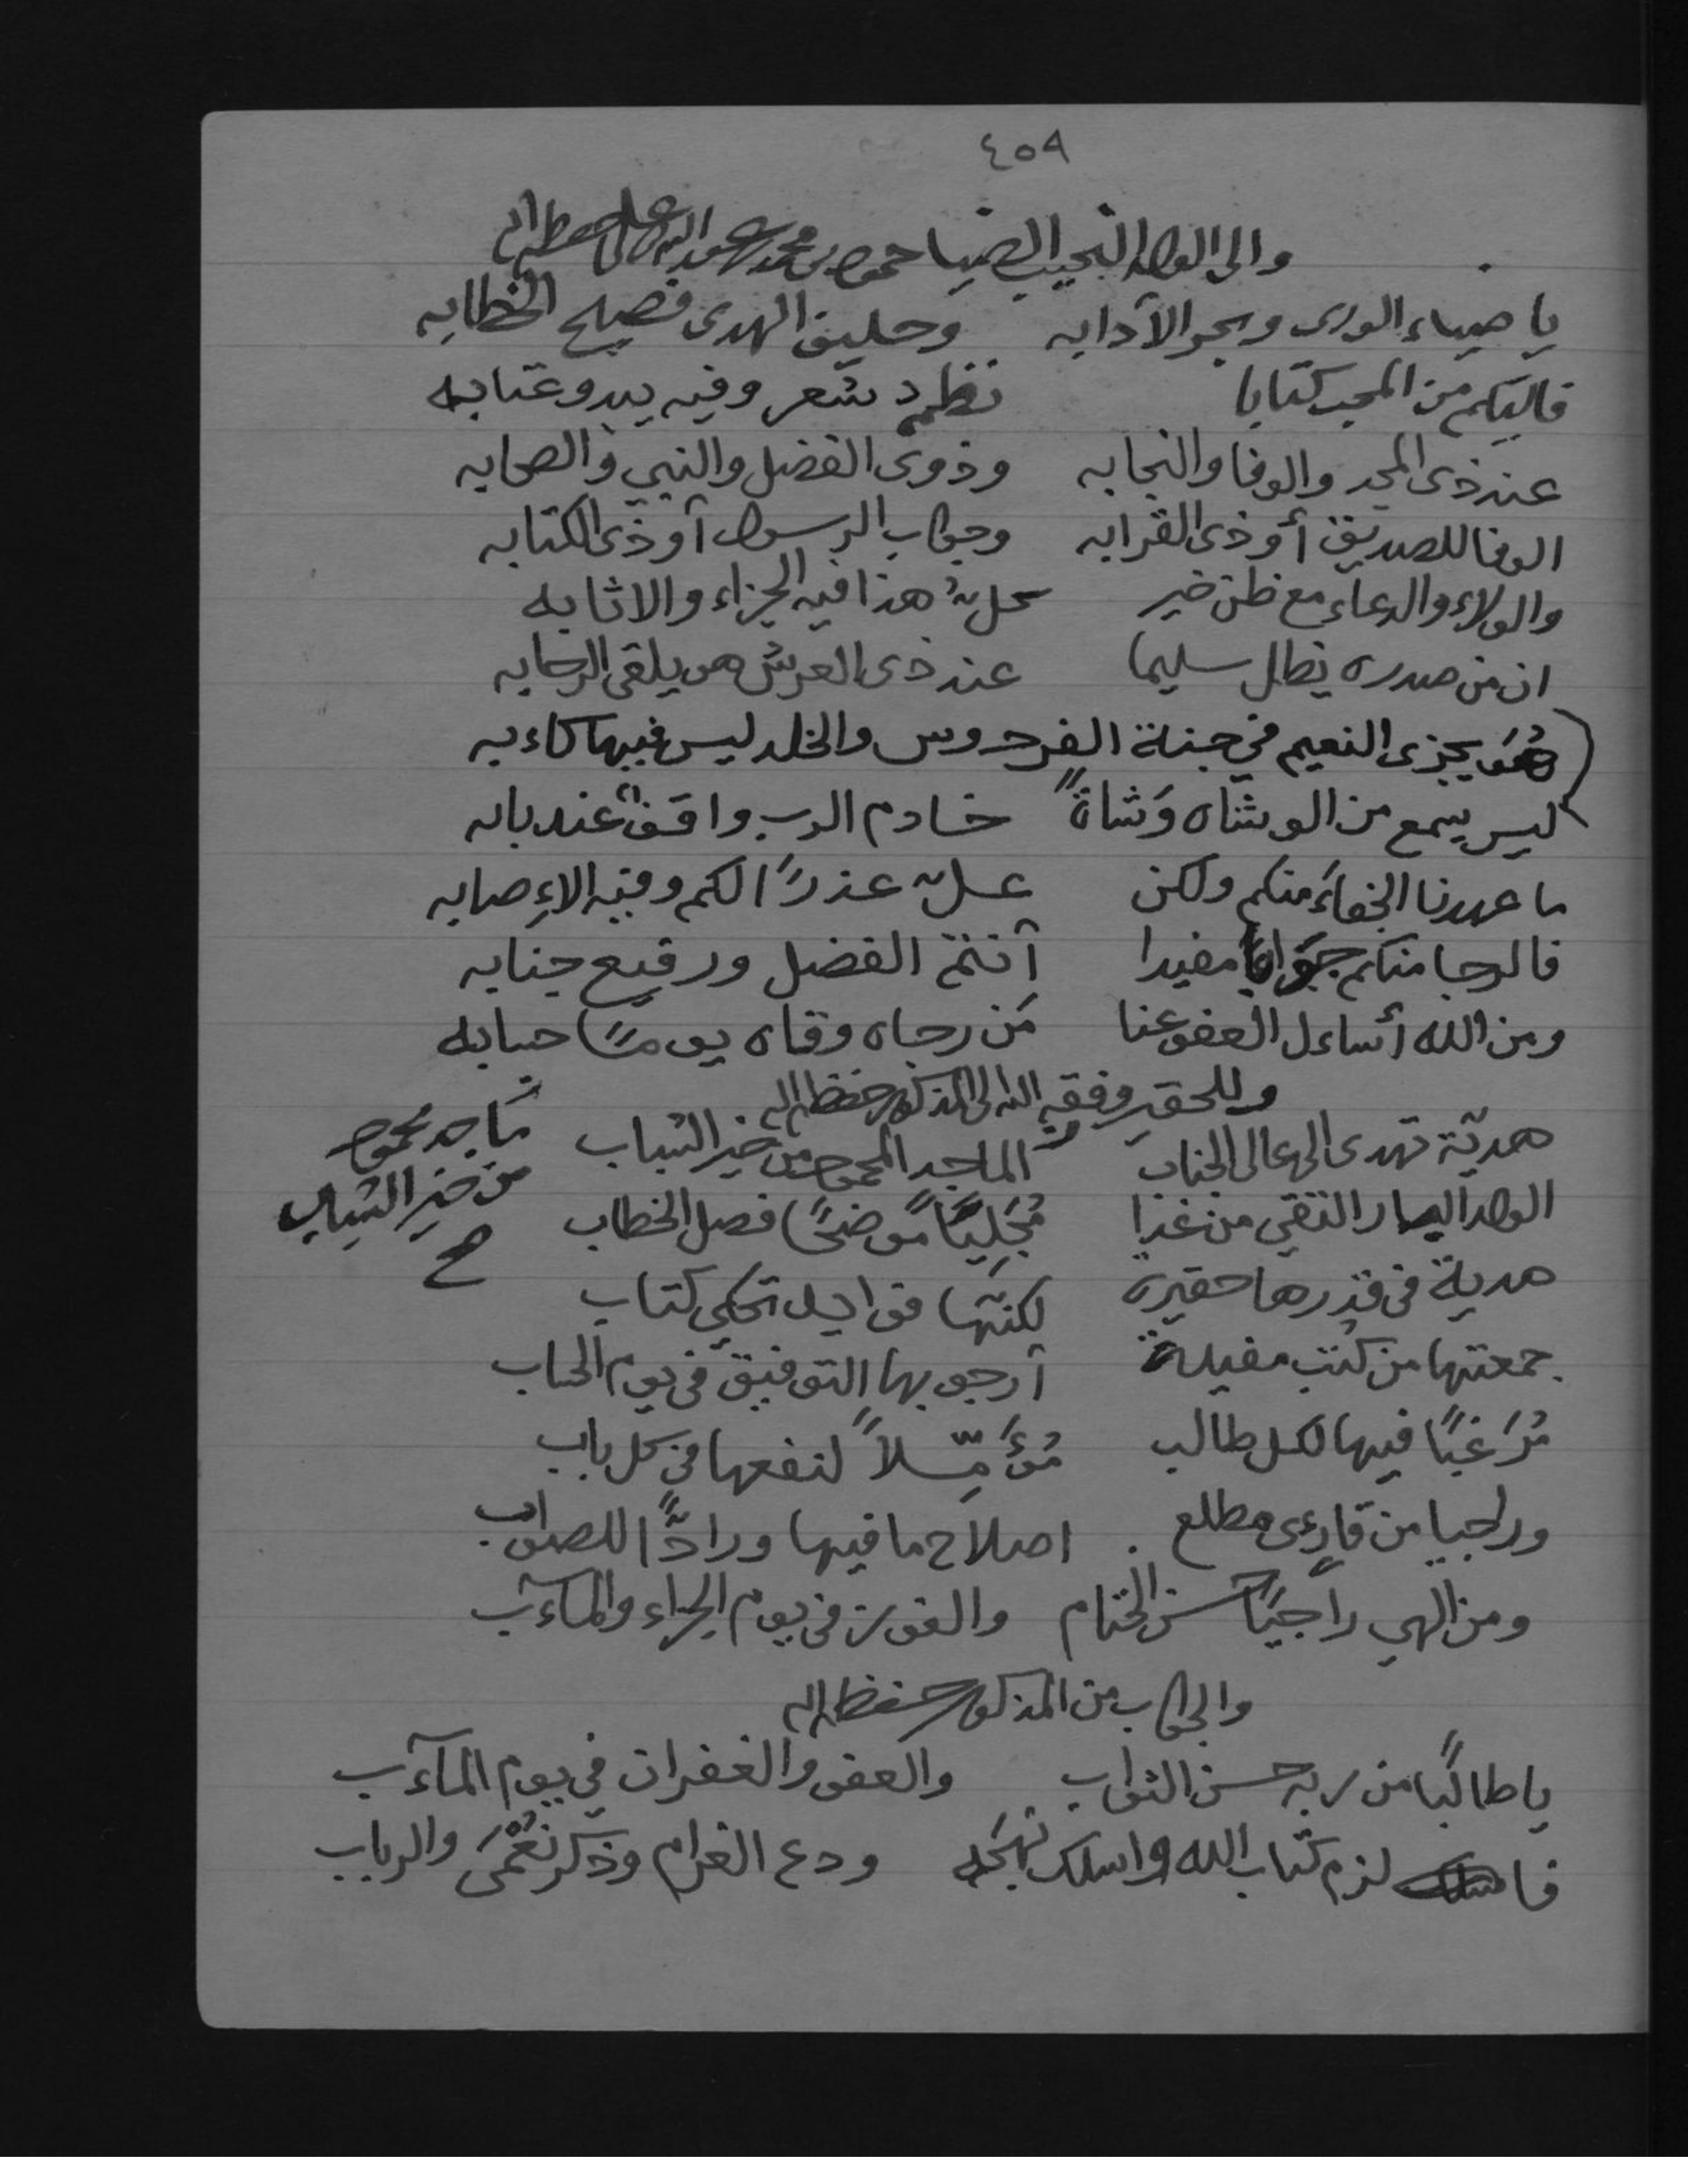 ٤٥٩
والى الولد النجيب الضيا حمود بن محمد حفظه الله
يا ضياء الورى وبحر الآدابه وحليف الهدى فصيح الخطابه
فاليكم من المحب كتابا نظم شعر وفيه يبدو عتابه
عند ذى المجد والوفا والنجابه وذوى الفضل والنبي والصحابه
الوفا للصديق أو ذى القرابه وجواب الرسول آو ذى الكتابه
والولاء والدعاء مع ظن خير كل هذا فيه الجزاء والاثابه
ان من صدره يظل سليما عند ذى العرش هو يلقى الرحابه
هُوَ يجزى النعيم في جنة الفردوس والخلد ليس فيها كاءبه
ليس يسمع من الوشاه وَشاةً خادم الرب واقفٌ عند بابه
ما عهدنا الجفاءَ منكم ولكن علّ عذرًا لكم وفيه الإصابه
فالرجا منكم جَوابًا مفيدا آنتم الفضل ورفيع جنابه
ومن الله أساءل العفو عنا مَن رجاه وقاه يومًا حسابه
وللحقير وفقه الله الى المذكور حفظه الله
هديّة تهدى الى عالى الجناب الماجد المحمود من خير الشباب
مَاجد محمود
من خير الشباب
صح
الولد البار التقي من غدا مُجَلِيًا مًوضحًا فصل الخطاب
هدية فى قدرها حقيره لكنّها فى تحكي كتاب
جمعتها من كتب مفيدة آرجو بها التوفيق فى يوم الحساب
مُرَغبًا فيها لكل طالب مُؤَمِّلاً لنفعها فى كل باب
وراجيا من قارءى مطلع اصلاح ما فيها ورادًّا للصواب
ومن الهي راجيًا حسن الختام والفوز فى يوم الجزاء والمآءب
والجواب من المذكور حفظه الله
يا طالبًا من ربه حسن الثواب والعفو والغفران في يوم المآءب
فا لزم كتاب الله واسلك نهجَه ودع الغرام وذكر نُعْمَى والرباب